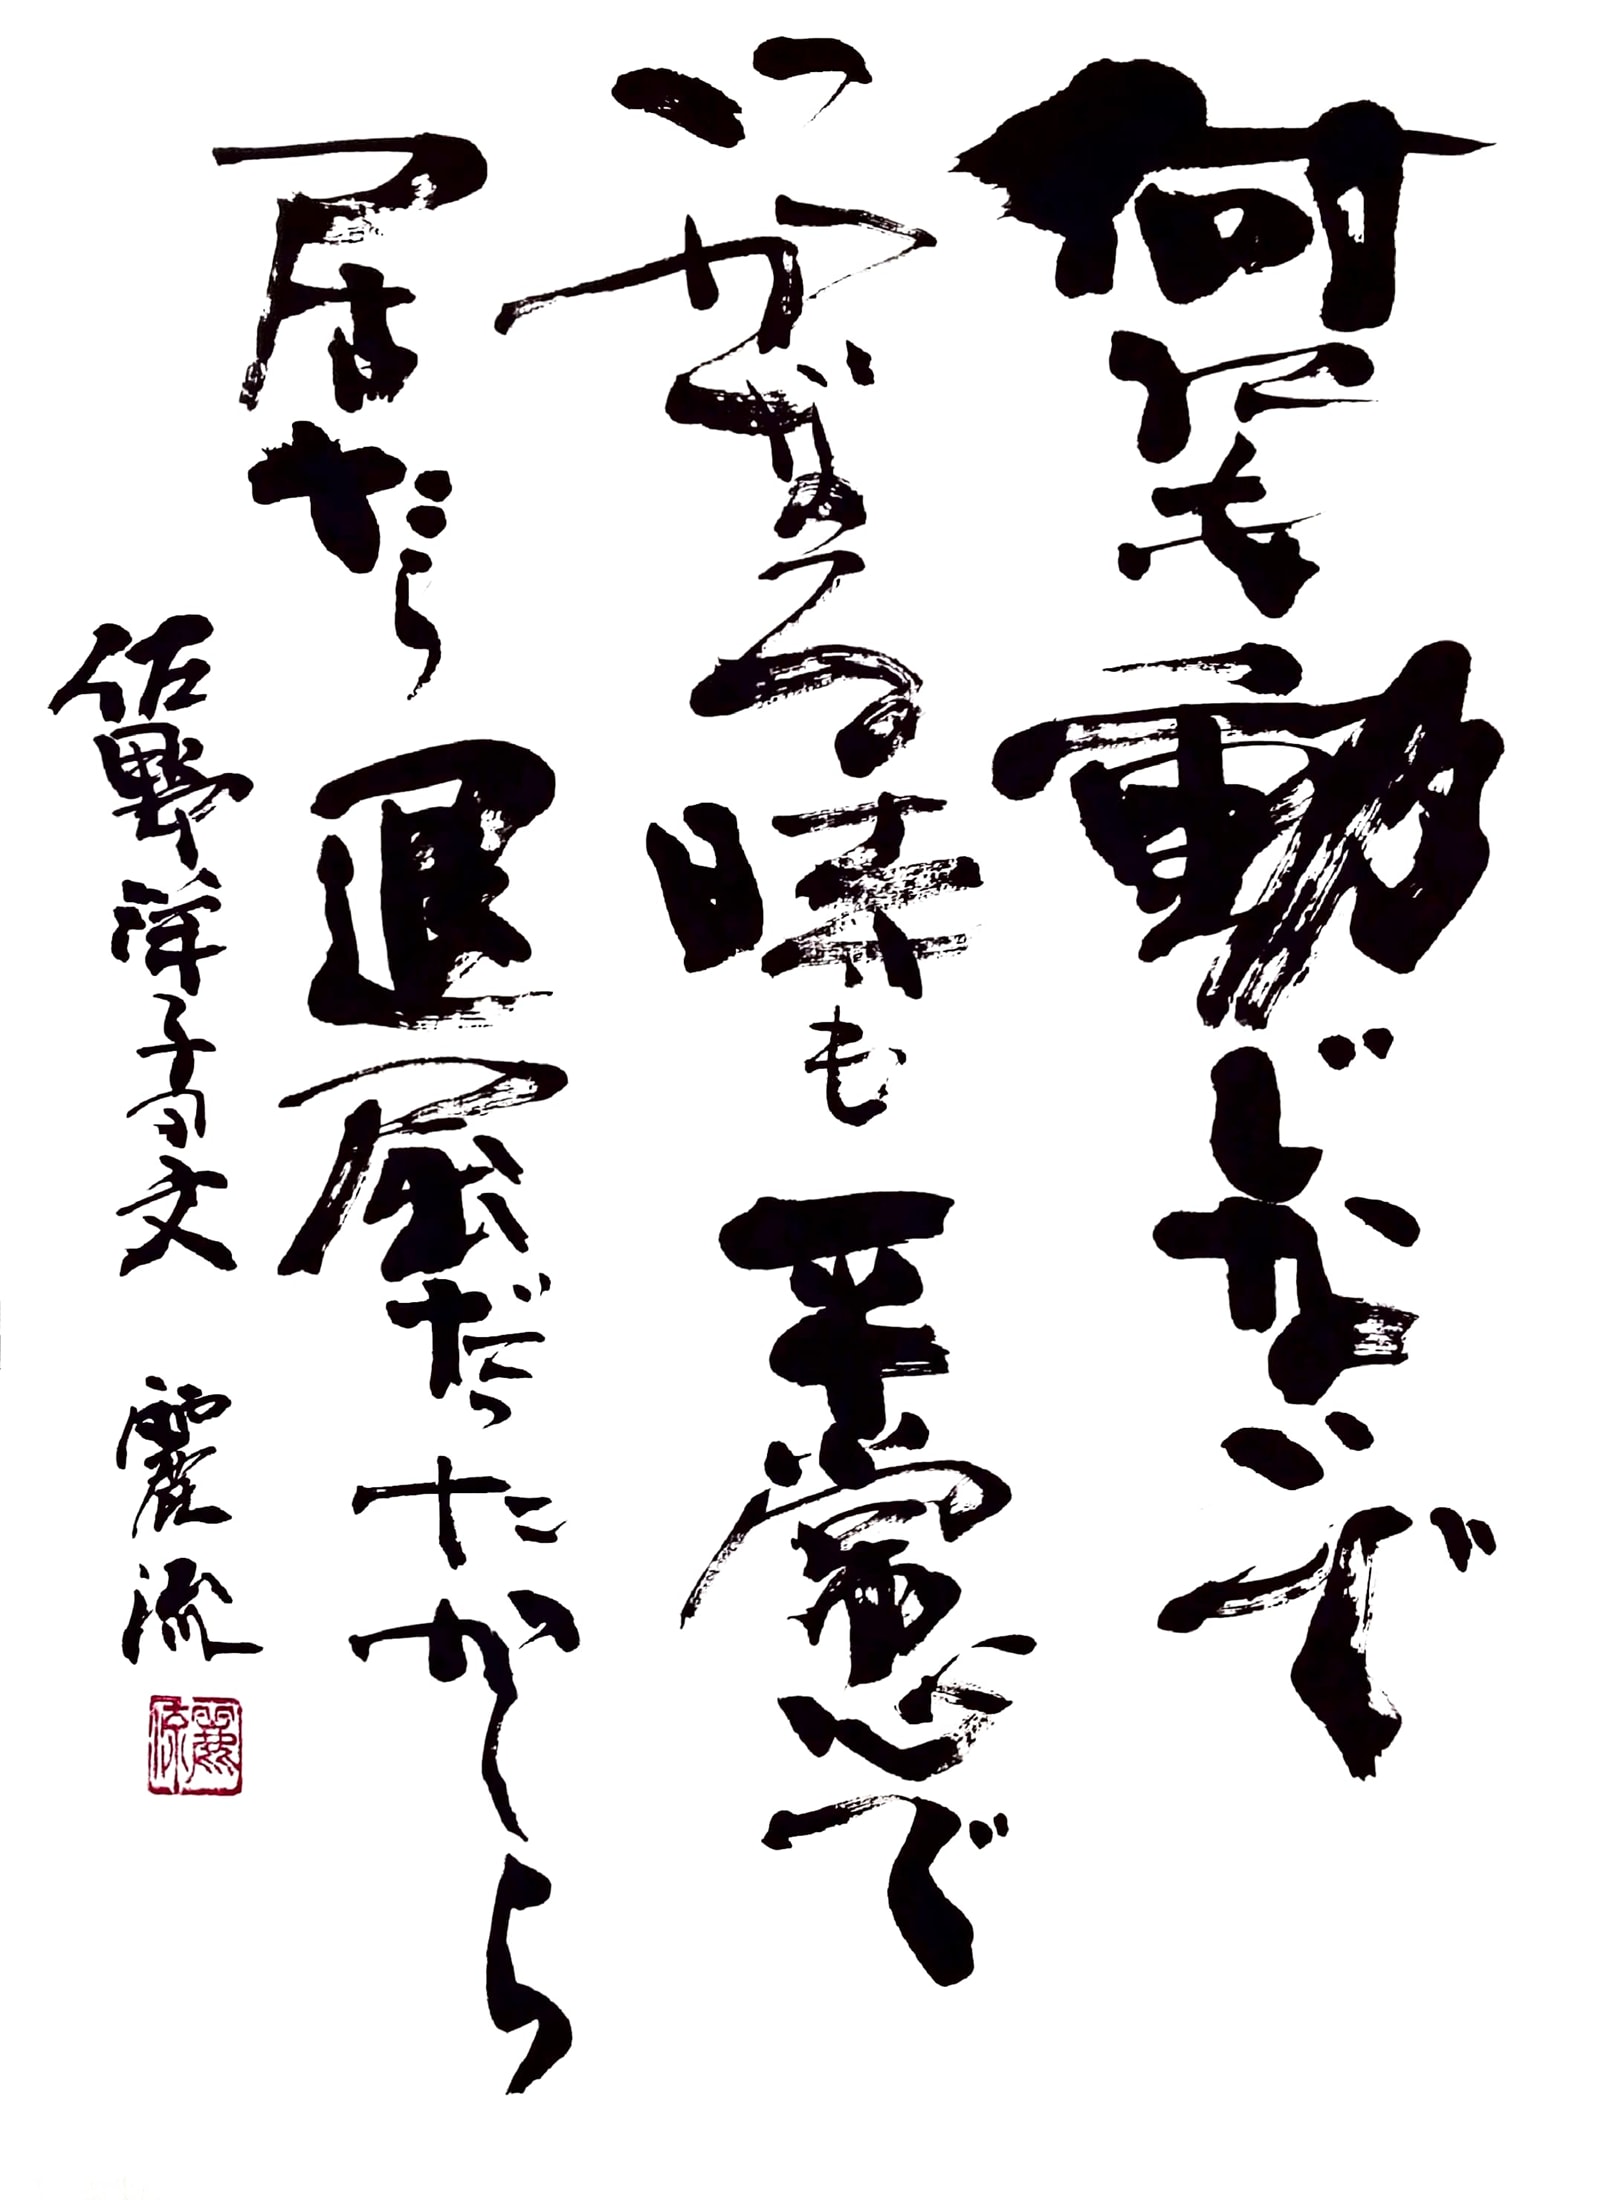 何にも動じないで
いかなる時も平常心で
居たら退屈だったかしら
佐野洋子の文 麗流